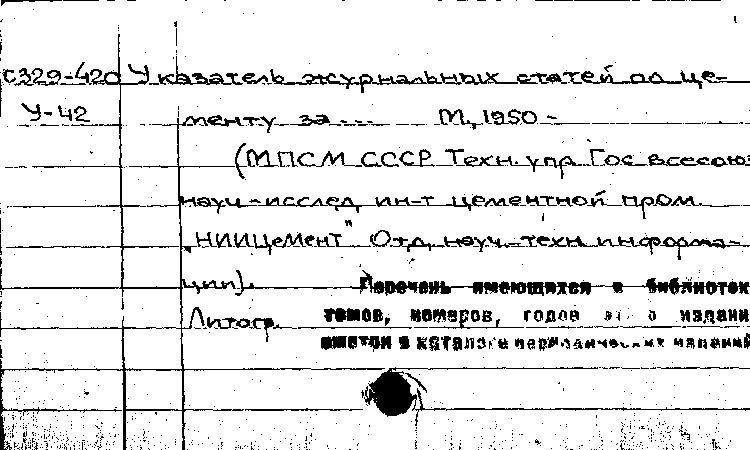 С329-420 Указатель журнальных статей по це-
У-42 менту за ... М., 1950 -
(МПСМ СССР Техн. упр. Гос. всесоюз
науч-исслед. ин-т цементной пром.
„НИИЦемент" Отд. науч.-техн. информа-
ции).
Перечень имеющихся в библиотек
Литогр. томов, номеров, годов издани
имеется в каталоге периодических изданий